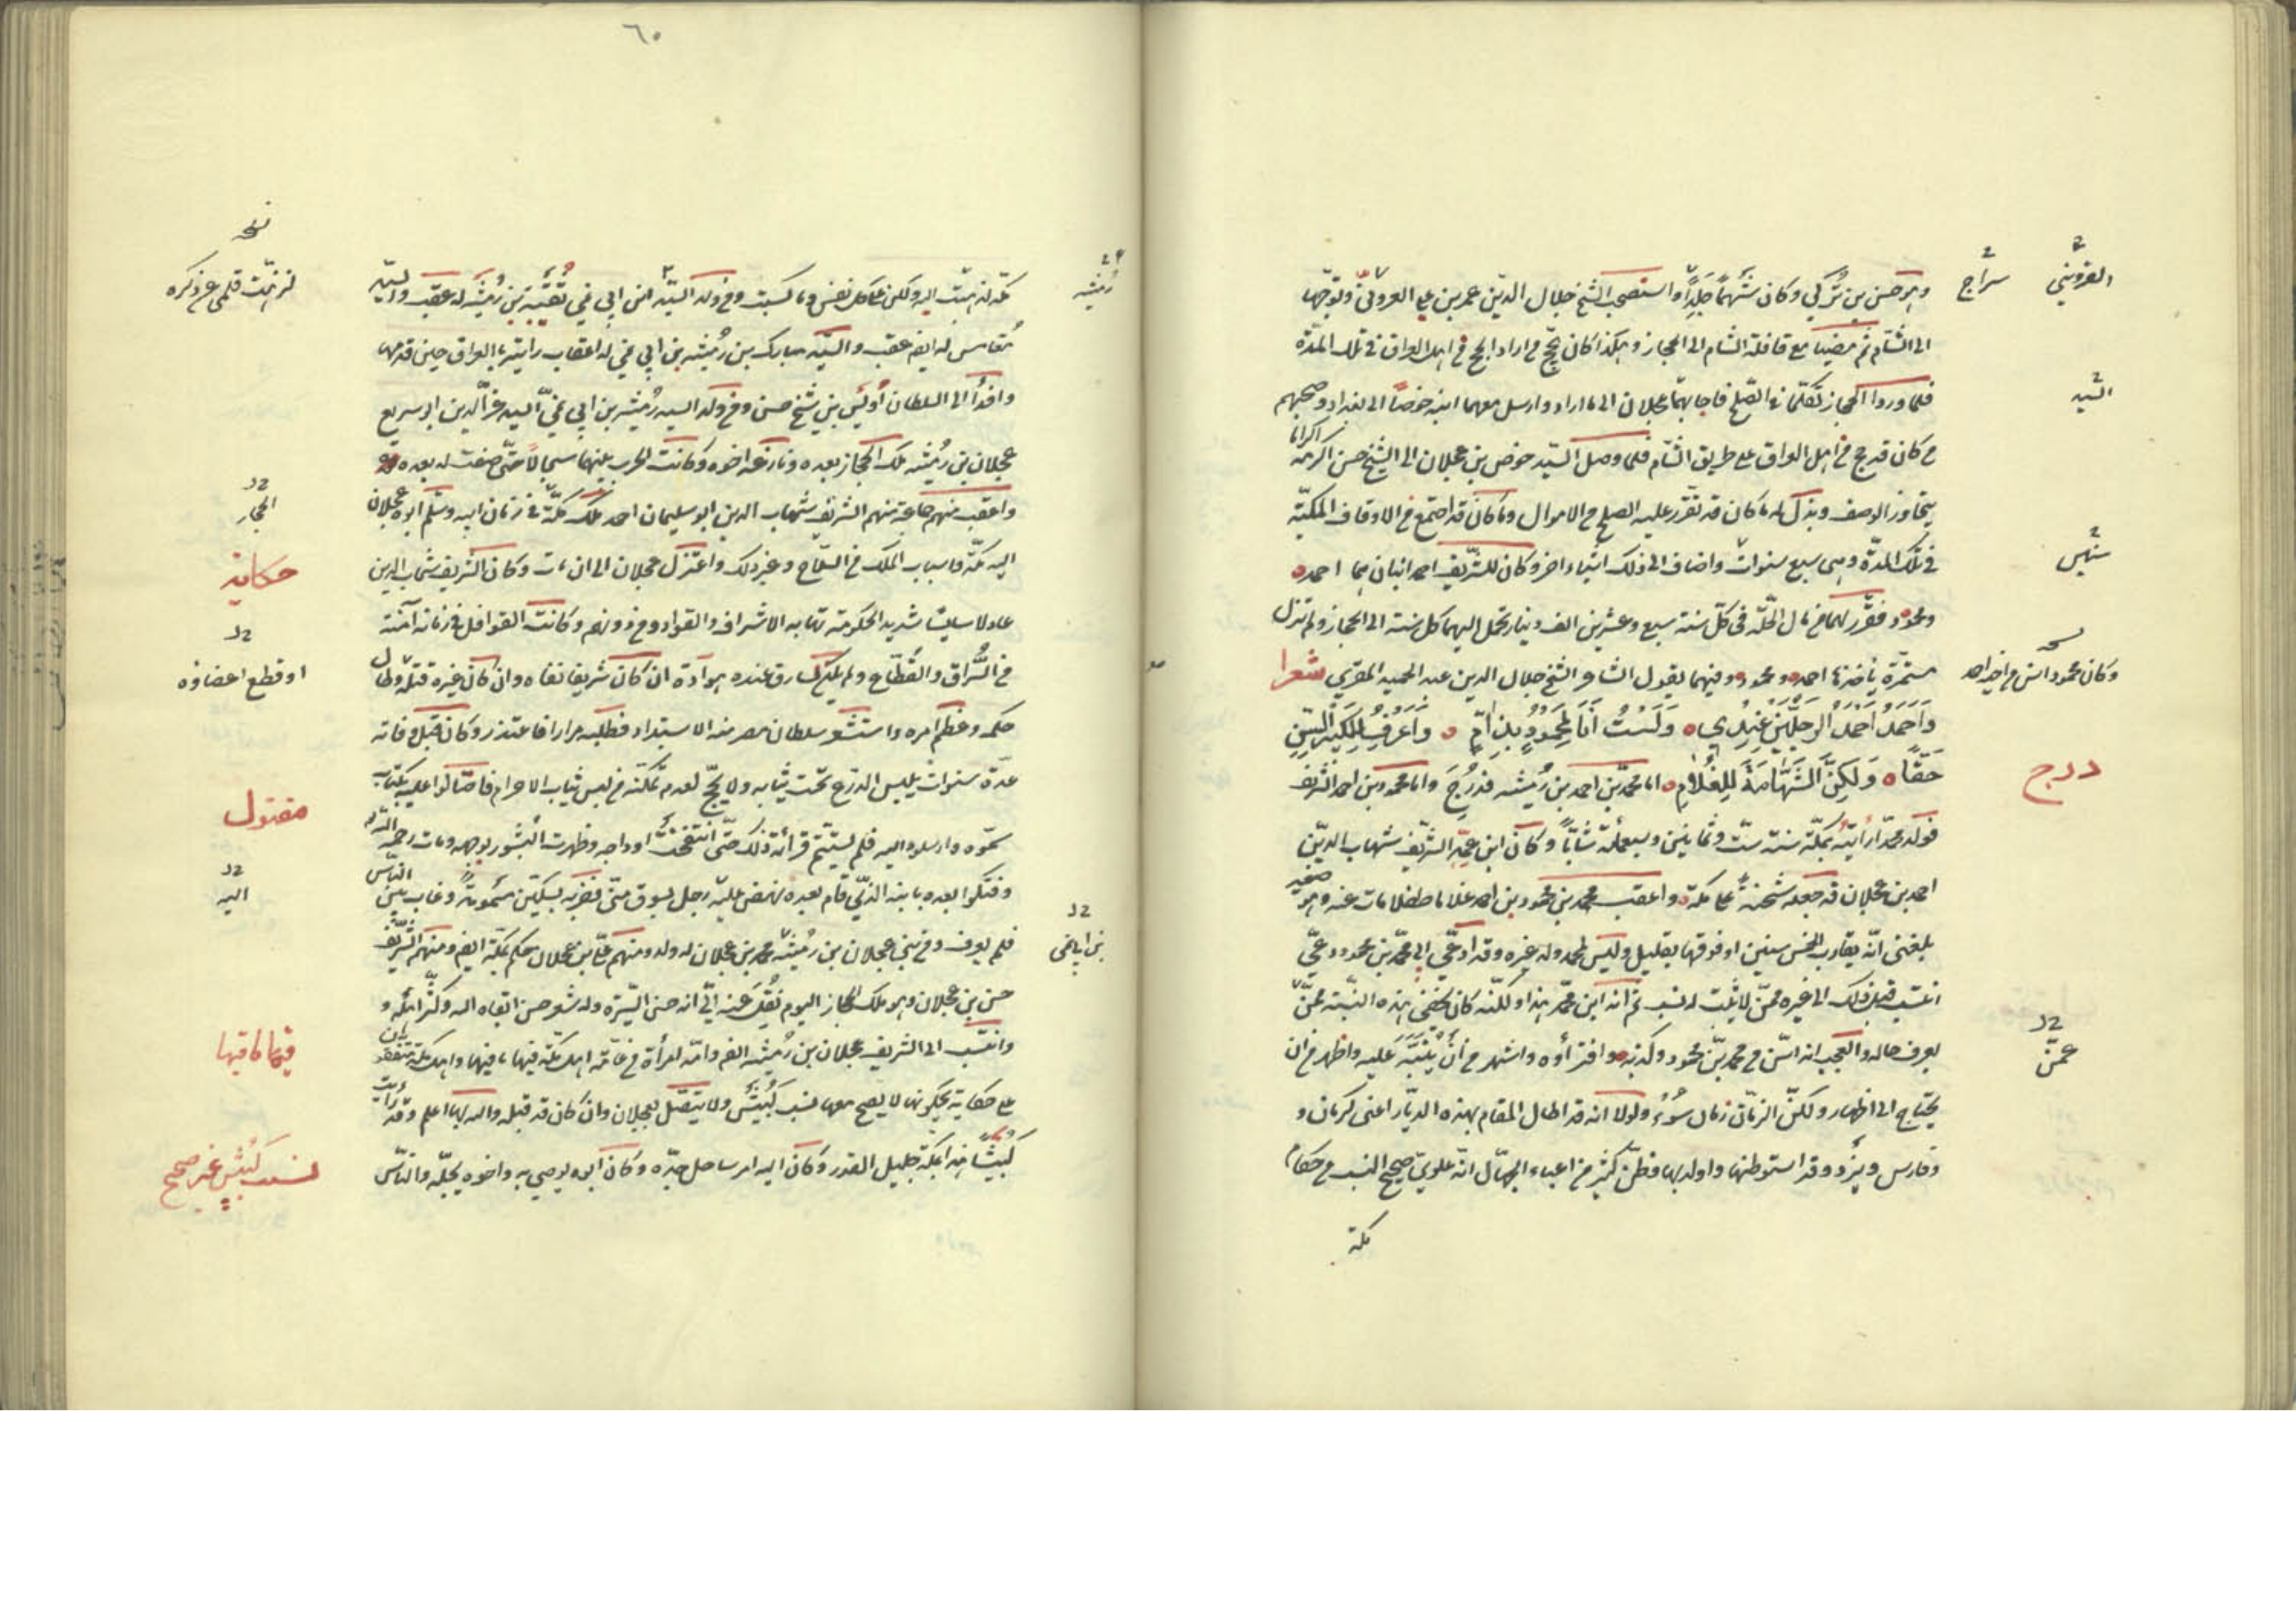 ٦٠
وهو حسن بن تركي وكان شهما جلدا واستصحب الشيخ جلال الدين عمر بن علي القزويني وتوجها
الى الشام ثم مضيا مع قافلة الشام الى الحجاز وهكذا كان يحج من اراد الحج من اهل العراق في تلك المدة
فلما وردا الحجاز تكلما في الصلح فاجابهما عجلان الى ما اراد وارسل معهما ابنه خرصا الى بغداد وصحبهم
من كان قد حج من اهل العراق على طريق الشام فلما وصل السيد خرص بن عجلان الى الشيخ حسن اكرمه اكراما
يتجاوز الوصف وبذل له ما كان قد تقرر عليه الصلح من الاموال وما كان قد اجتمع من الاوقاف المكية
في تلك المدة وهي سبع سنوات واضاف الى ذلك اشياء اخر وكان للشريف احمد ابنان هما احمد
ومحمود فقرر لهما من مال الحلة في كل سنة سبع وعشرين الف دينار تحمل اليهما كل سنة الى الحجاز ولم تزل
مستمرة يأخذها احمد ومحمود وفيهما يقول الشاعر الشيخ جلال الدين عبد الحميد المقري شعرا
وَاَحمَدُ اَحمَدُ الرجلين عِندِى وَلَستُ اَنَا لِمَحمُودٍ بِذَامِّ وَاَعرِفُ لِلكَبِيرِ السِّنّ
حَقًّا وَلَكِنَّ الشَّهَامَةَ لِلغُلَامِ اما محمد بن احمد بن رميثه فدرج واما محمود بن احمد الشريف
فولد محمدا رأيته بمكة سنة ست وثمانين وسبعمائة شابا وكان ابن عمه الشريف شهاب الدين
احمد بن عجلان قد جعله شحنة على مكة واعقب محمد بن محمود بن احمد غلاما طفلا مات عنه وهو صغير
بلغني انه يقارب الخمس سنين او فوقها بقليل وليس لمحمد ولد غيره وقد ادعى الى محمد بن محمود دعي
انتسب قبل ذلك الى غيره ممن لا يثبت له نسب ثم انه ابن محمد هذا ولكنه كان يخفي هذه النسبة عمن
يعرف حاله والعجب انه اسن من محمد بن محمود وكذبه وافتراؤه اشهر من أن ينبه عليه واظهر من ان
يحتاج الى اظهار ولكن الزمان زمان سوء ولولا انه قد اطال المقام بهذه الديار اعني كرمان و
وفارس ويزد وقد استوطنها واولد بها وظن كثير من اغبياء الجهال انه علوي صحيح النسب من حكام
مكة
القزويني
سراج
السيد
سنين
وكان محمود اسن من اخيه احمد
درج
عمن
مكة لم يثبت اليه ولكن على كل نفس ما كسبت ومن ولد السيد ابن ابي نمي ثقبة بن رميثه له عقب والسيد
مغامس له ايضا عقب والسيد مبارك بن رميثه بن ابي نمي له اعقاب رايته بالعراق حين قدمها
وافدا الى السلطان أويس بن شيخ حسن ومن ولد السيد رميثه بن ابي نمي السيد عز الدين ابو سريع
عجلان بن رميثه ملك الحجاز بعده ونازعه اخوه وكانت الحرب بينهما سجالا حتى صفت له بعده
واعقب منهم جماعة منهم الشريف شهاب الدين ابو سليمان احمد ملك مكة في زمان ابيه وسلم ابوه عجلان
اليه مكة واسباب الملك من السلاح وغير ذلك واعتزل عجلان الى ان مات وكان الشريف شهاب الدين
عادلا سايسا شديد الحكومة تهابه الاشراف والقواد ومن دونهم وكانت القوافل في زمانه آمنة
من السراق والقطاع ولم يكن لسارق عنده هوادة ان كان شريفا نفاه وان كان غيره قتله وطال
حكمه وعظم امره واستشعر سلطان مصر منه الاستبداد فطلبه مرارا فاعتذر وكان قبل وفاته
عدة سنوات يلبس الدرع تحت ثيابه ولا يحج لعدم تمكنه من لبس ثياب الاحرام فاحتالوا عليه بكتاب
سموه وارسلوه اليه فلم يستتم قرأته ذلك حتى انتفخت أوداجه وظهرت البثور بوجهه ومات رحمه الله
وفتكوا بعده بابنه الذي قام بعده نهض عليه رجل بسوق منى فضربه بسكين مسمومة وغاب بين الناس
فلم يعرف ومن بني عجلان بن رميثه محمد بن عجلان له ولد ومنهم علي بن عجلان حكم بمكة ايضا ومنهم الشريف
حسن بن عجلان وهو ملك الحجاز اليوم نُقِل عنه إلي انه حسن السيرة وله شعر حسن ابقاه الله وكثر امثاله و
وانتسب الى الشريف عجلان بن رميثه ايضا وامه امرأة من عامة اهل مكة فيها ما فيها واهل مكة متفقون
على حكاية يحكونها لا يصح معها نسب كبيش ولا يتصل بعجلان وان كان قد قبله والله بها اعلم وقد رأيت
كبيشا هذا بمكة جليل القدر وكان اليه امر ساحل جده وكان ابوه يوصي به واخوه يجله والناس
رميثه
بن ابي نمي
لم يثبت قلمي عن ذكره
الحجاز
حكاية
او قطع اعضاؤه
مقتول
اليه
فيها ما فيها
نسب كبيش غير صحيح